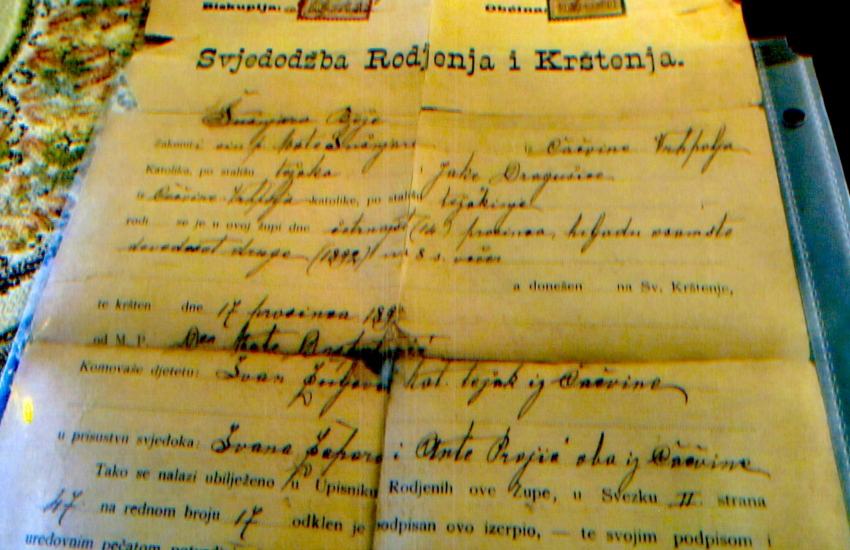 Biskupija: Obćina:
Svjedodžba Rodjenja i Krštenja.
Zakoniti sin Mate Čačvine Vrhpolja
Katolika, po stališu težaka i Jake Dragušice
iz Čačvine Vrhpolja katolike, po stališu težakinje
rodi se je u ovoj župi dne četrnajst (14) prosinca, hiljadu osamsto
devedeset druge (1892) u 8 s. večer
a donešen na Sv. Krštenje,
te kršten dne 17 prosinca 1892
od M. P. Don Mate
Komovaše djetetu: Ivan kat. težak iz Čačvine
u prisustvu svjedoka: Ivana i Ante Projić oba iz Čačvine
Tako se nalazi ubilježeno u Upisniku Rodjenih ove Župe, u Svezku II. strana
47 na rednom broju 17 odklen je podpisan ovo izerpio, — te svojim podpisom i
uredovnim pečatom